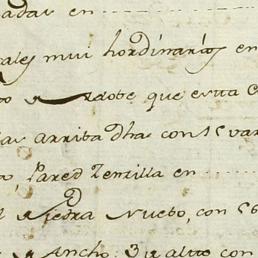 adas en
ales mui hordinarios en
o de Adobe que esta
as arriba dhas con 15 var
Pared Zenzilla en
Piedra Nuebo, con 56
Ancho 3 alto con